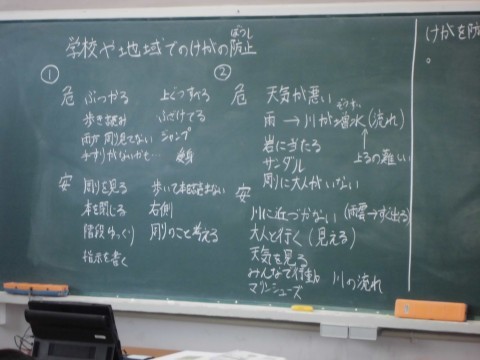 学校や地域でのけがの防止
ぼうし
①
危 ぶつかる 上ぐつすべる
歩き読み ふざけてる
周り見てない ジャンプ
手すりがない
安 周りを見る
本を閉じる 右側
階段ゆっくり 周りのこと考える
指示を書く
②
危 天気が悪い
雨 → 川が増水(流れ)
岩に当たる 上るの難しい
サンダル
周に大人がいない
安
川に近づかない(雨雲→すぐ出る)
大人と行く(見える)
天気を見る
みんなで行動 川の流れ
マリンシューズ
けがを防